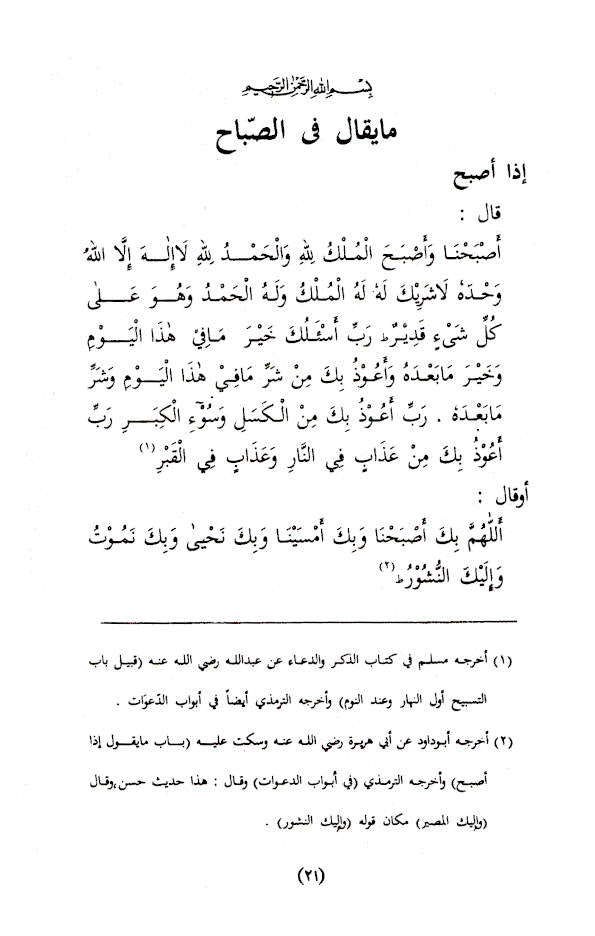 بِسْمِ اللهِ الرَّحْمٰنِ الرَّحِيْمِ
مايقال فى الصّباح
إذا أصبح
قال :
أَصْبَحْنَا وَأَصْبَحَ الْمُلْكُ لِلّٰهِ وَالْحَمْدُ لِلّٰهِ لَاإِلٰهَ إِلَّا اللهُ
وَحْدَهٗ لَاشَرِيْكَ لَهٗ لَهُ الْمُلْكُ وَلَهُ الْحَمْدُ وَهُوَ عَلٰى
كُلِّ شَىْءٍ قَدِيْرٌ ط رَبِّ أَسْئَلُكَ خَيْرَ مَافِيْ هٰذَا الْيَوْمِ
وَخَيْرَ مَابَعْدَهٗ وَأَعُوْذُ بِكَ مِنْ شَرِّ مَافِيْ هٰذَا الْيَوْمِ وَشَرِّ
مَابَعْدَهٗ . رَبِّ أَعُوْذُ بِكَ مِنَ الْكَسَلِ وَسُوْٓءِ الْكِبَرِ رَبِّ
أَعُوْذُ بِكَ مِنْ عَذَابٍ فِي النَّارِ وَعَذَابٍ فِي الْقَبْرِ(١)
أوقال :
أَللّٰهُمَّ بِكَ أَصْبَحْنَا وَبِكَ أَمْسَيْنَا وَبِكَ نَحْيىٰ وَبِكَ نَمُوْتُ
وَإِلَيْكَ النُّشُوْرُ ط(٢)
(١) أخرجه مسلم في كتاب الذكر والدعاء عن عبدالله رضي الله عنه (قبيل باب
التسبيح أول النهار وعند النوم) وأخرجه الترمذي أيضاً في أبواب الدّعوَات .
(٢) أخرجه أبوداود عن أبي هريرة رضي الله عنه وسكت عليه (باب مايقول إذا
أصبح) وأخرجه الترمذي (في أبواب الدعوات) وقال : هذا حديث حسن،وقال
(وإليك المصير) مكان قوله (وإليك النشور) .
(٢١)